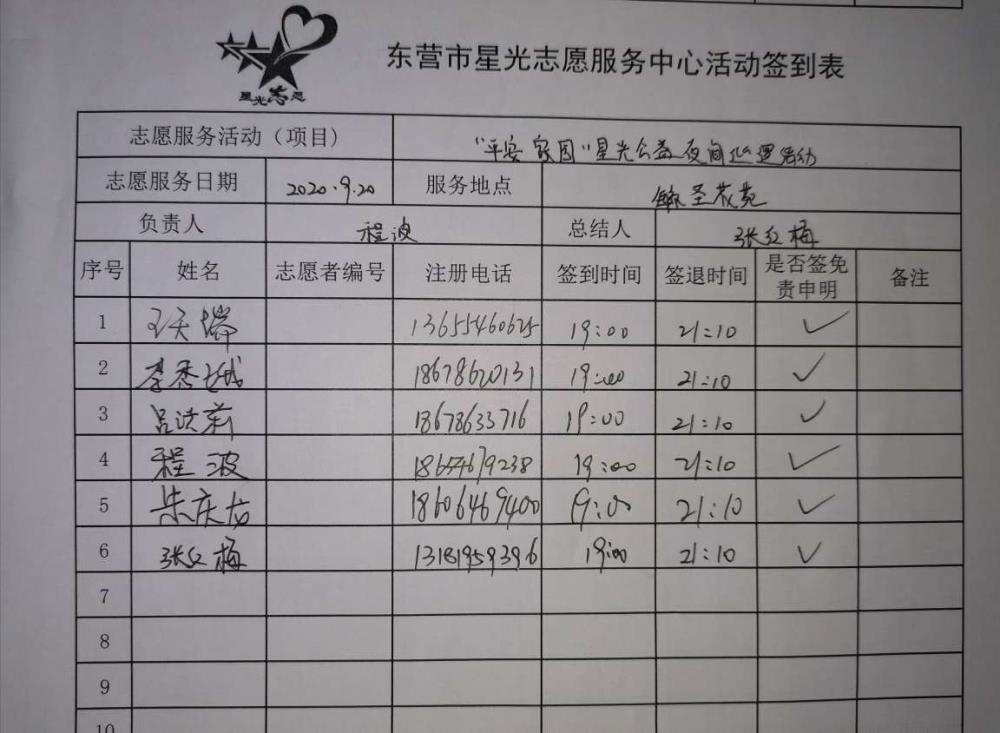 星光志愿
东营市星光志愿服务中心活动签到表
志愿服务活动（项目） "平安家园"星光公益夜间巡逻活动
志愿服务日期 2020.9.20 服务地点 圣苑
负责人 程波 总结人 张红梅
序号 姓名 志愿者编号 注册电话 签到时间 签退时间 是否签免责申明 备注
1 13655460625 19:00 21:10 ✓
2 李秀娥 18678620131 19:00 21:10 ✓
3 吕洪莉 18678633716 19:00 21:10 ✓
4 程波 18654679238 19:00 21:10 ✓
5 朱庆龙 18606469400 19:00 21:10 ✓
6 张红梅 13181959396 19:00 21:10 ✓
7
8
9
10